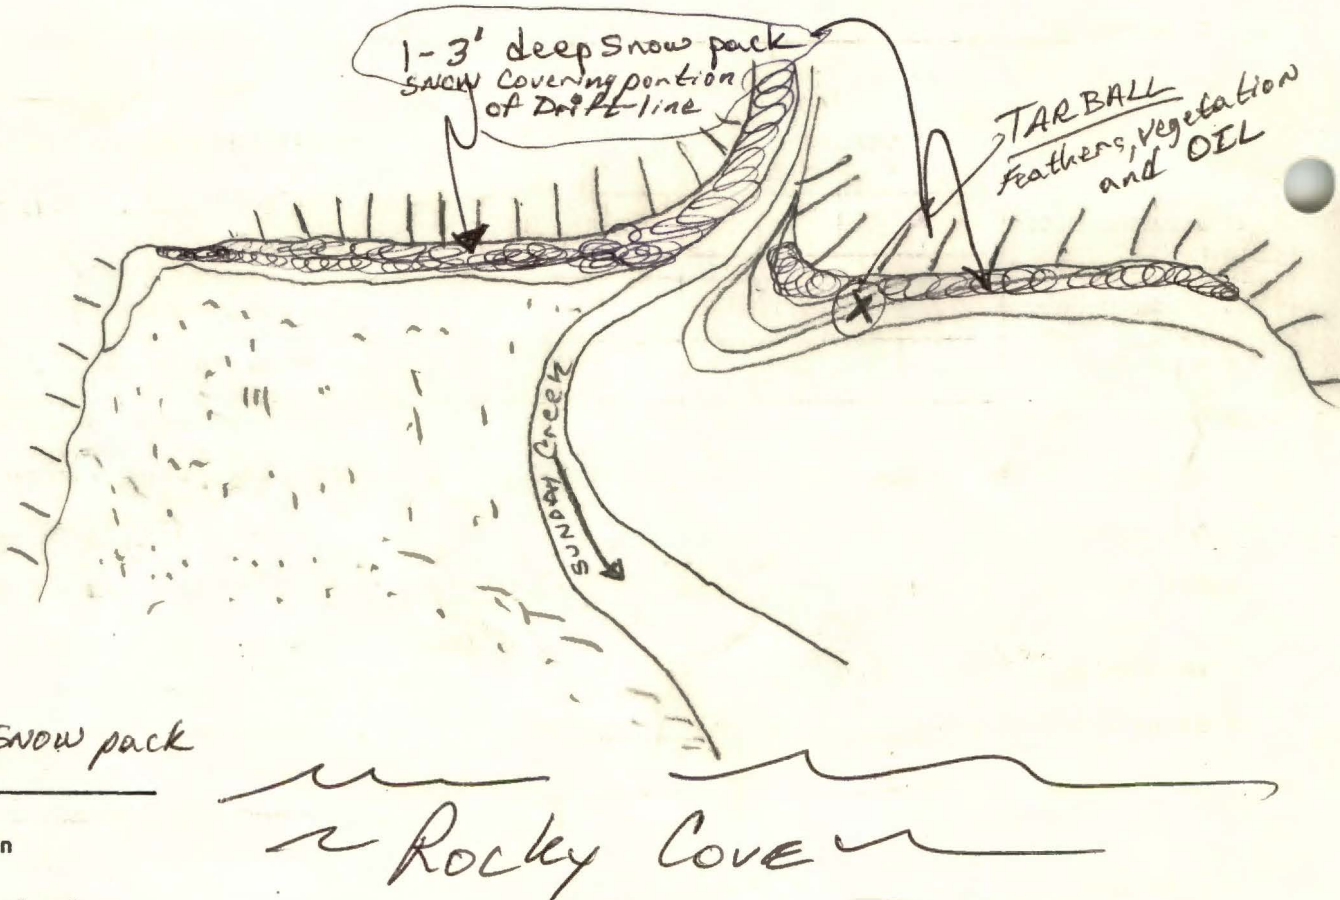 1-3' deep snow pack
snow covering portion
of Drift-line
TARBALL
Feathers, vegetation
and OIL
X
Creek
snow pack
n
Rocky Cove